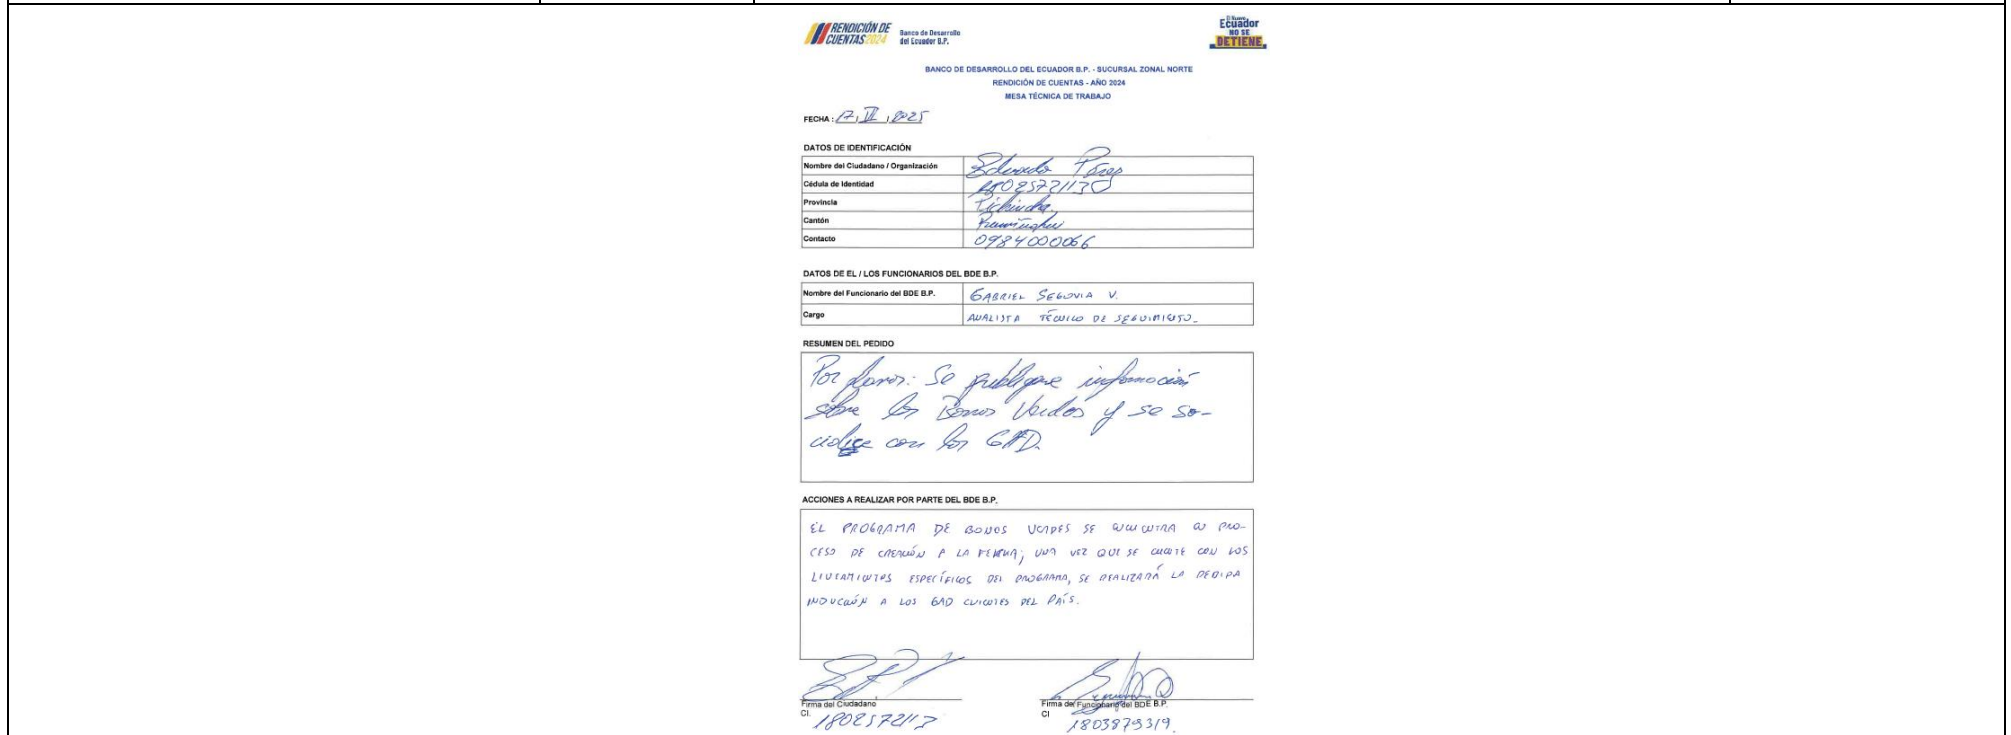 RENDICIÓN DE
CUENTAS 2024
Banco de Desarrollo
del Ecuador B.P.
El Nuevo
Ecuador
NO SE
DETIENE
BANCO DE DESARROLLO DEL ECUADOR B.P. - SUCURSAL ZONAL NORTE
RENDICIÓN DE CUENTAS - AÑO 2024
MESA TÉCNICA DE TRABAJO
FECHA : 17, VI, 2025
DATOS DE IDENTIFICACIÓN
Nombre del Ciudadano / Organización Eduardo Pérez
Cédula de Identidad
Provincia Pichincha.
Cantón Rumiñahui
Contacto 0984000066
DATOS DE EL / LOS FUNCIONARIOS DEL BDE B.P.
Nombre del Funcionario del BDE B.P. GABRIEL SEGOVIA V.
Cargo ANALISTA TÉCNICO DE SEGUIMIENTO.
RESUMEN DEL PEDIDO
Por favor: Se publique información
sobre los Bonos Verdes y se so-
cialice con los GAD.
ACCIONES A REALIZAR POR PARTE DEL BDE B.P.
EL PROGRAMA DE BONOS VERDES SE ENCUENTRA EN PRO-
CESO DE CREACIÓN A LA FECHA; UNA VEZ QUE SE CUENTE CON LOS
LINEAMIENTOS ESPECÍFICOS DEL PROGRAMA, SE REALIZARÁ LA DEBIDA
INDUCCIÓN A LOS GAD CLIENTES DEL PAÍS.
Firma del Ciudadano
CI.
Firma del Funcionario del BDE B.P.
CI 1803879319.